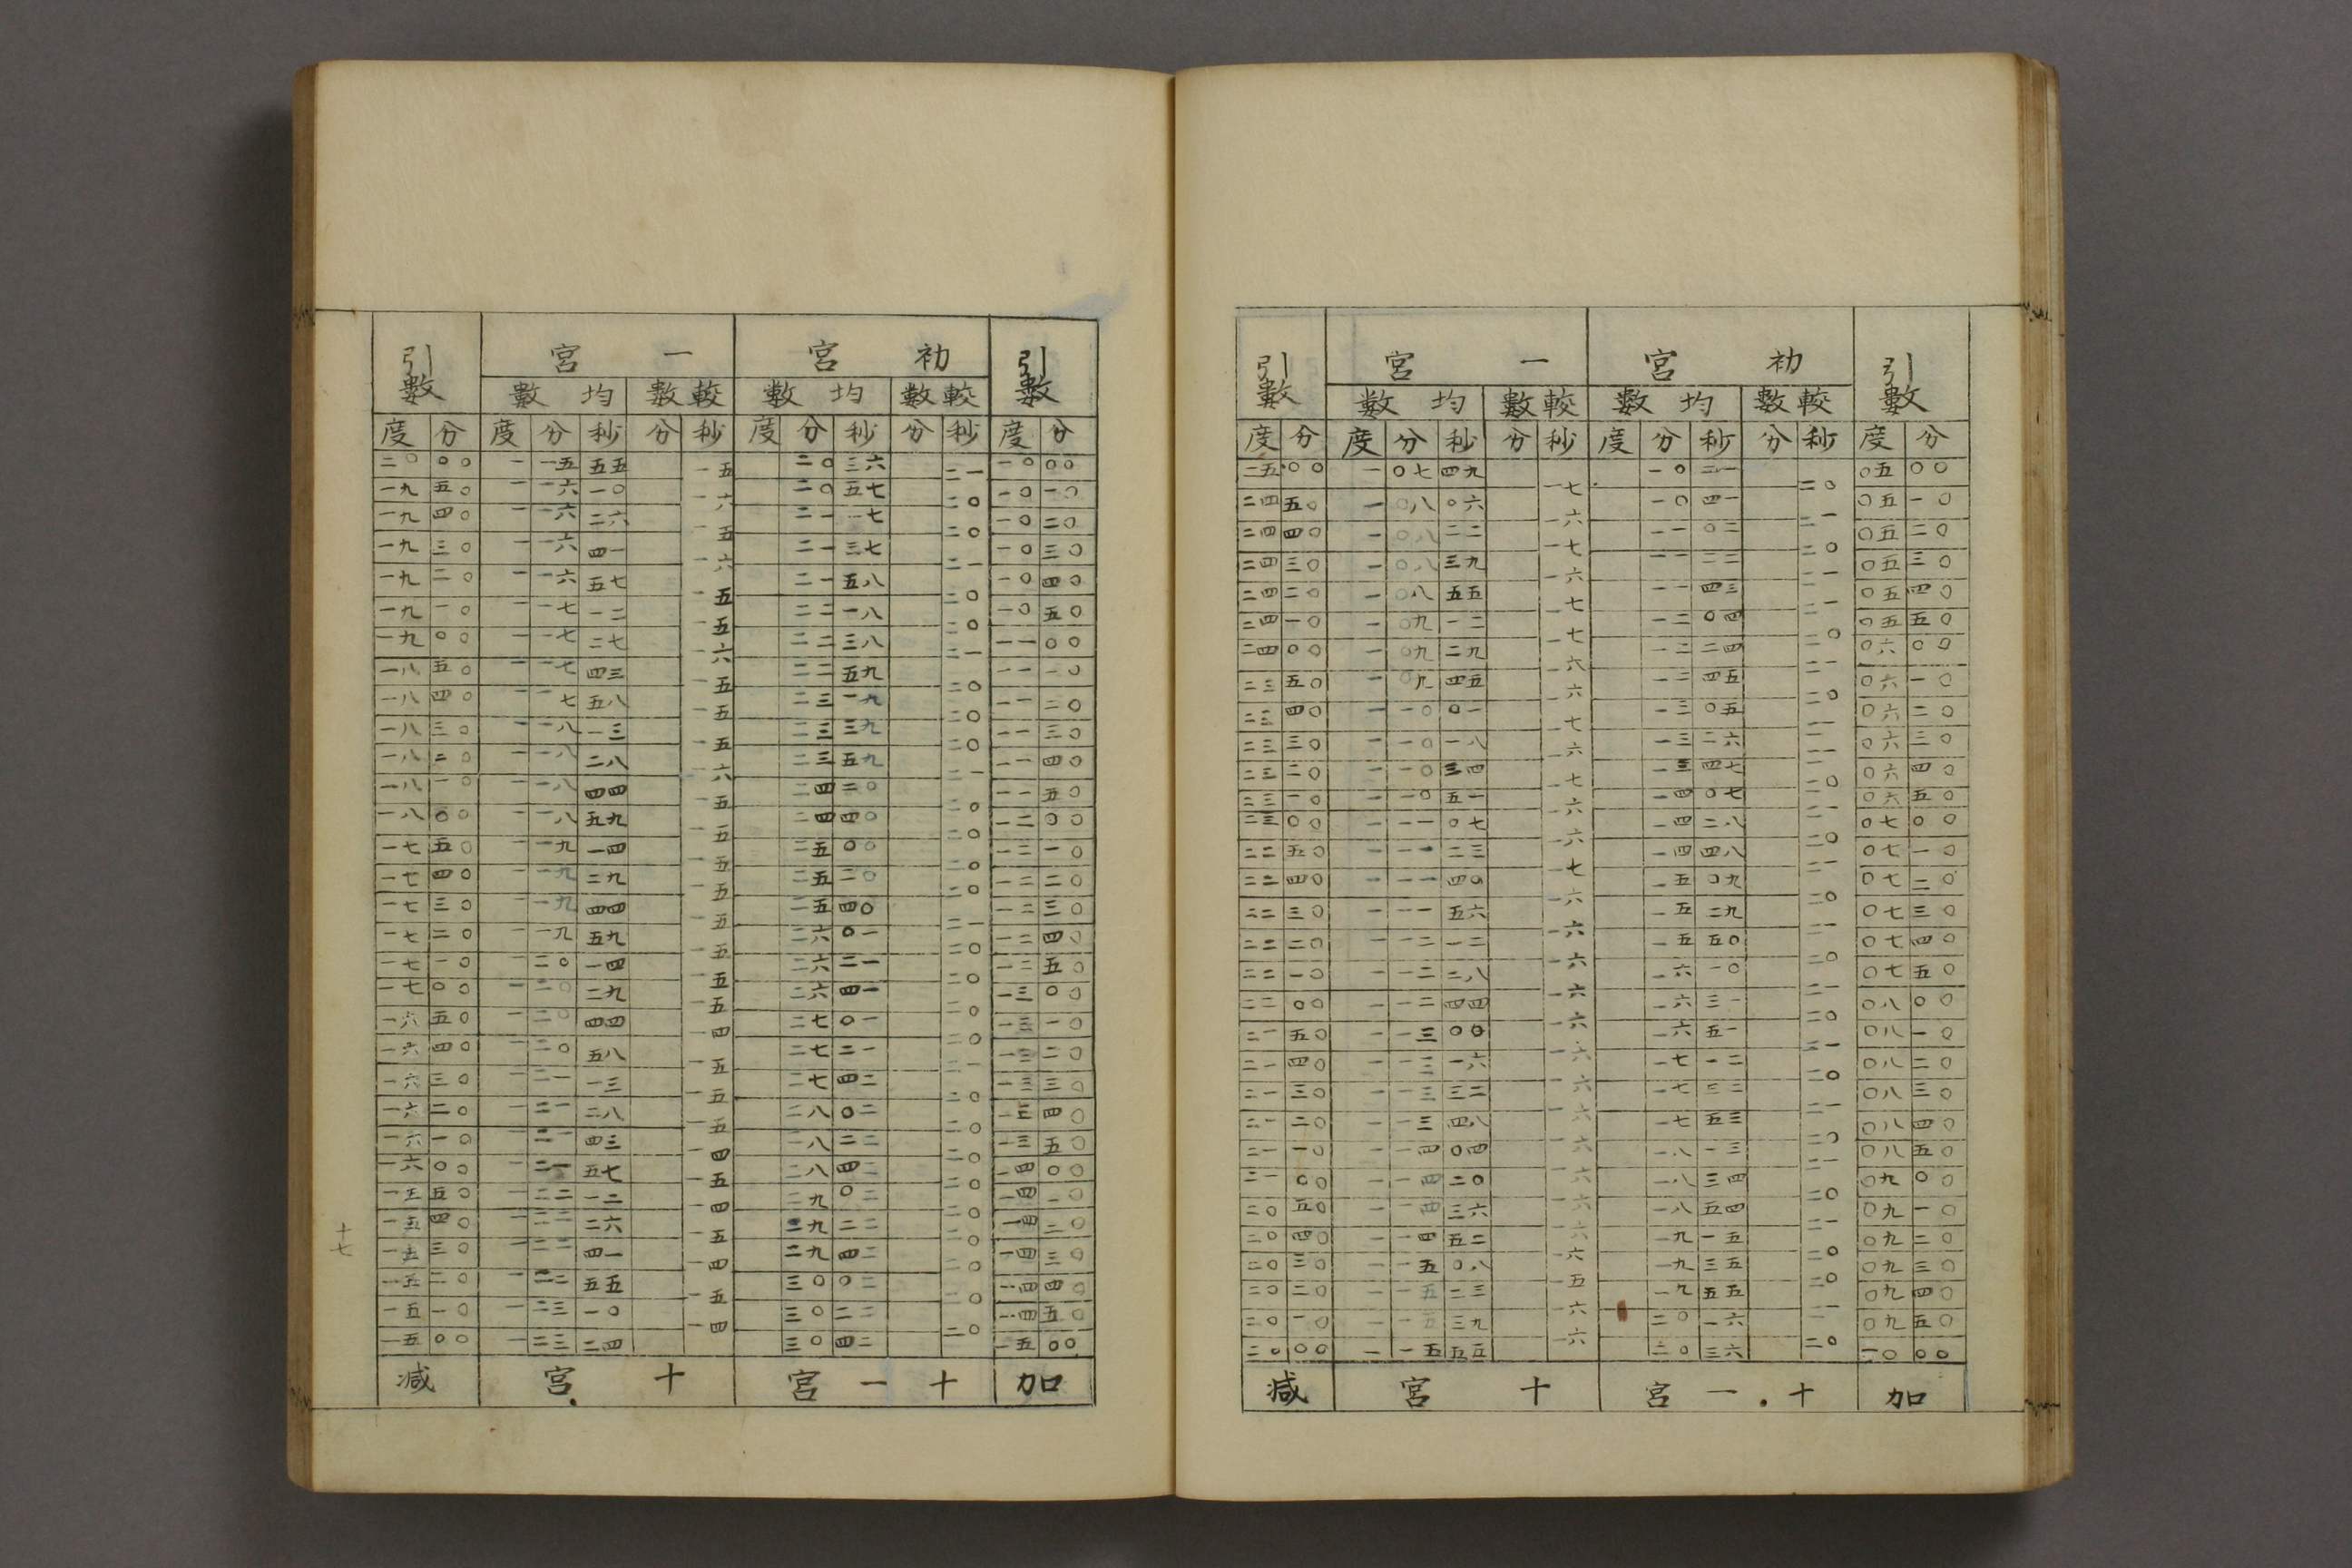 引數 初宮 一宮 引數
較數 均數 較數 均數
度 分 度 分 秒 分 秒 度 分 秒 分 秒 度 分
二五 〇〇 一 〇七 四九 一七 一〇 二一 二〇 〇五 〇〇
二四 五〇 一 〇八 〇六 一六 一〇 四一 二一 〇五 一〇
二四 四〇 一 〇八 二二 一七 一一 〇二 二〇 〇五 二〇
二四 三〇 一 〇八 三九 一六 一一 二二 二一 〇五 三〇
二四 二〇 一 〇八 五五 一七 一一 四三 二一 〇五 四〇
二四 一〇 一 〇九 一二 一七 一二 〇四 二〇 〇五 五〇
二四 〇〇 一 〇九 二九 一六 一二 二四 二一 〇六 〇〇
二三 五〇 一 〇九 四五 一六 一二 四五 二〇 〇六 一〇
二三 四〇 一 一〇 〇一 一七 一三 〇五 二一 〇六 二〇
二三 三〇 一 一〇 一八 一六 一三 二六 二一 〇六 三〇
二三 二〇 一 一〇 三四 一七 一三 四七 二〇 〇六 四〇
二三 一〇 一 一〇 五一 一六 一四 〇七 二一 〇六 五〇
二三 〇〇 一 一一 〇七 一六 一四 二八 二〇 〇七 〇〇
二二 五〇 一 一一 二三 一七 一四 四八 二一 〇七 一〇
二二 四〇 一 一一 四〇 一六 一五 〇九 二〇 〇七 二〇
二二 三〇 一 一一 五六 一六 一五 二九 二一 〇七 三〇
二二 二〇 一 一二 一二 一六 一五 五〇 二〇 〇七 四〇
二二 一〇 一 一二 二八 一六 一六 一〇 二一 〇七 五〇
二二 〇〇 一 一二 四四 一六 一六 三一 二〇 〇八 〇〇
二一 五〇 一 一三 〇〇 一六 一六 五一 二一 〇八 一〇
二一 四〇 一 一三 一六 一六 一七 一二 二〇 〇八 二〇
二一 三〇 一 一三 三二 一六 一七 三二 二一 〇八 三〇
二一 二〇 一 一三 四八 一六 一七 五三 二〇 〇八 四〇
二一 一〇 一 一四 〇四 一六 一八 一三 二一 〇八 五〇
二一 〇〇 一 一四 二〇 一六 一八 三四 二〇 〇九 〇〇
二〇 五〇 一 一四 三六 一六 一八 五四 二一 〇九 一〇
二〇 四〇 一 一四 五二 一六 一九 一五 二〇 〇九 二〇
二〇 三〇 一 一五 〇八 一五 一九 三五 二〇 〇九 三〇
二〇 二〇 一 一五 二三 一六 一九 五五 二一 〇九 四〇
二〇 一〇 一 一五 三九 一六 二〇 一六 二〇 〇九 五〇
二〇 〇〇 一 一五 五五 二〇 三六 一〇 〇〇
加 十一宮 十宮 減
引數 初宮 一宮 引數
較數 均數 較數 均數
度 分 度 分 秒 分 秒 度 分 秒 分 秒 度 分
二〇 〇〇 一 一五 五五 一五 二〇 三六 二一 一〇 〇〇
一九 五〇 一 一六 一〇 一六 二〇 五七 二〇 一〇 一〇
一九 四〇 一 一六 二六 一五 二一 一七 二〇 一〇 二〇
一九 三〇 一 一六 四一 一六 二一 三七 二一 一〇 三〇
一九 二〇 一 一六 五七 一五 二一 五八 二〇 一〇 四〇
一九 一〇 一 一七 一二 一五 二二 一八 二〇 一〇 五〇
一九 〇〇 一 一七 二七 一六 二二 三八 二一 一一 〇〇
一八 五〇 一 一七 四三 一五 二二 五九 二〇 一一 一〇
一八 四〇 一 一七 五八 一五 二三 一九 二〇 一一 二〇
一八 三〇 一 一八 一三 一五 二三 三九 二〇 一一 三〇
一八 二〇 一 一八 二八 一六 二三 五九 二一 一一 四〇
一八 一〇 一 一八 四四 一五 二四 二〇 二〇 一一 五〇
一八 〇〇 一 一八 五九 一五 二四 四〇 二〇 一二 〇〇
一七 五〇 一 一九 一四 一五 二五 〇〇 二〇 一二 一〇
一七 四〇 一 一九 二九 一五 二五 二〇 二〇 一二 二〇
一七 三〇 一 一九 四四 一五 二五 四〇 二一 一二 三〇
一七 二〇 一 一九 五九 一五 二六 〇一 二〇 一二 四〇
一七 一〇 一 二〇 一四 一五 二六 二一 二〇 一二 五〇
一七 〇〇 一 二〇 二九 一五 二六 四一 二〇 一三 〇〇
一六 五〇 一 二〇 四四 一四 二七 〇一 二〇 一三 一〇
一六 四〇 一 二〇 五八 一五 二七 二一 二一 一三 二〇
一六 三〇 一 二一 一三 一五 二七 四二 二〇 一三 三〇
一六 二〇 一 二一 二八 一五 二八 〇二 二〇 一三 四〇
一六 一〇 一 二一 四三 一四 二八 二二 二〇 一三 五〇
一六 〇〇 一 二一 五七 一五 二八 四二 二〇 一四 〇〇
一五 五〇 一 二二 一二 一四 二九 〇二 二〇 一四 一〇
一五 四〇 一 二二 二六 一五 二九 二二 二〇 一四 二〇
一五 三〇 一 二二 四一 一四 二九 四二 二〇 一四 三〇
一五 二〇 一 二二 五五 一五 三〇 〇二 二〇 一四 四〇
一五 一〇 一 二三 一〇 一四 三〇 二二 二〇 一四 五〇
一五 〇〇 一 二三 二四 三〇 四二 一五 〇〇
加 十一宮 十宮 減
十七